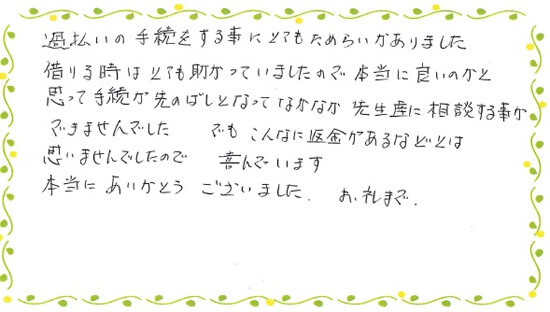 過払いの手続をする事にとてもためらいがありました
借りる時はとても助かっていましたので本当に良いのかと
思って手続が先のばしとなってなかなか先生達に相談する事が
できませんでした でもこんなに返金があるなどとは
思いませんでしたので 喜んでいます
本当にありがとうございました. お礼まで.